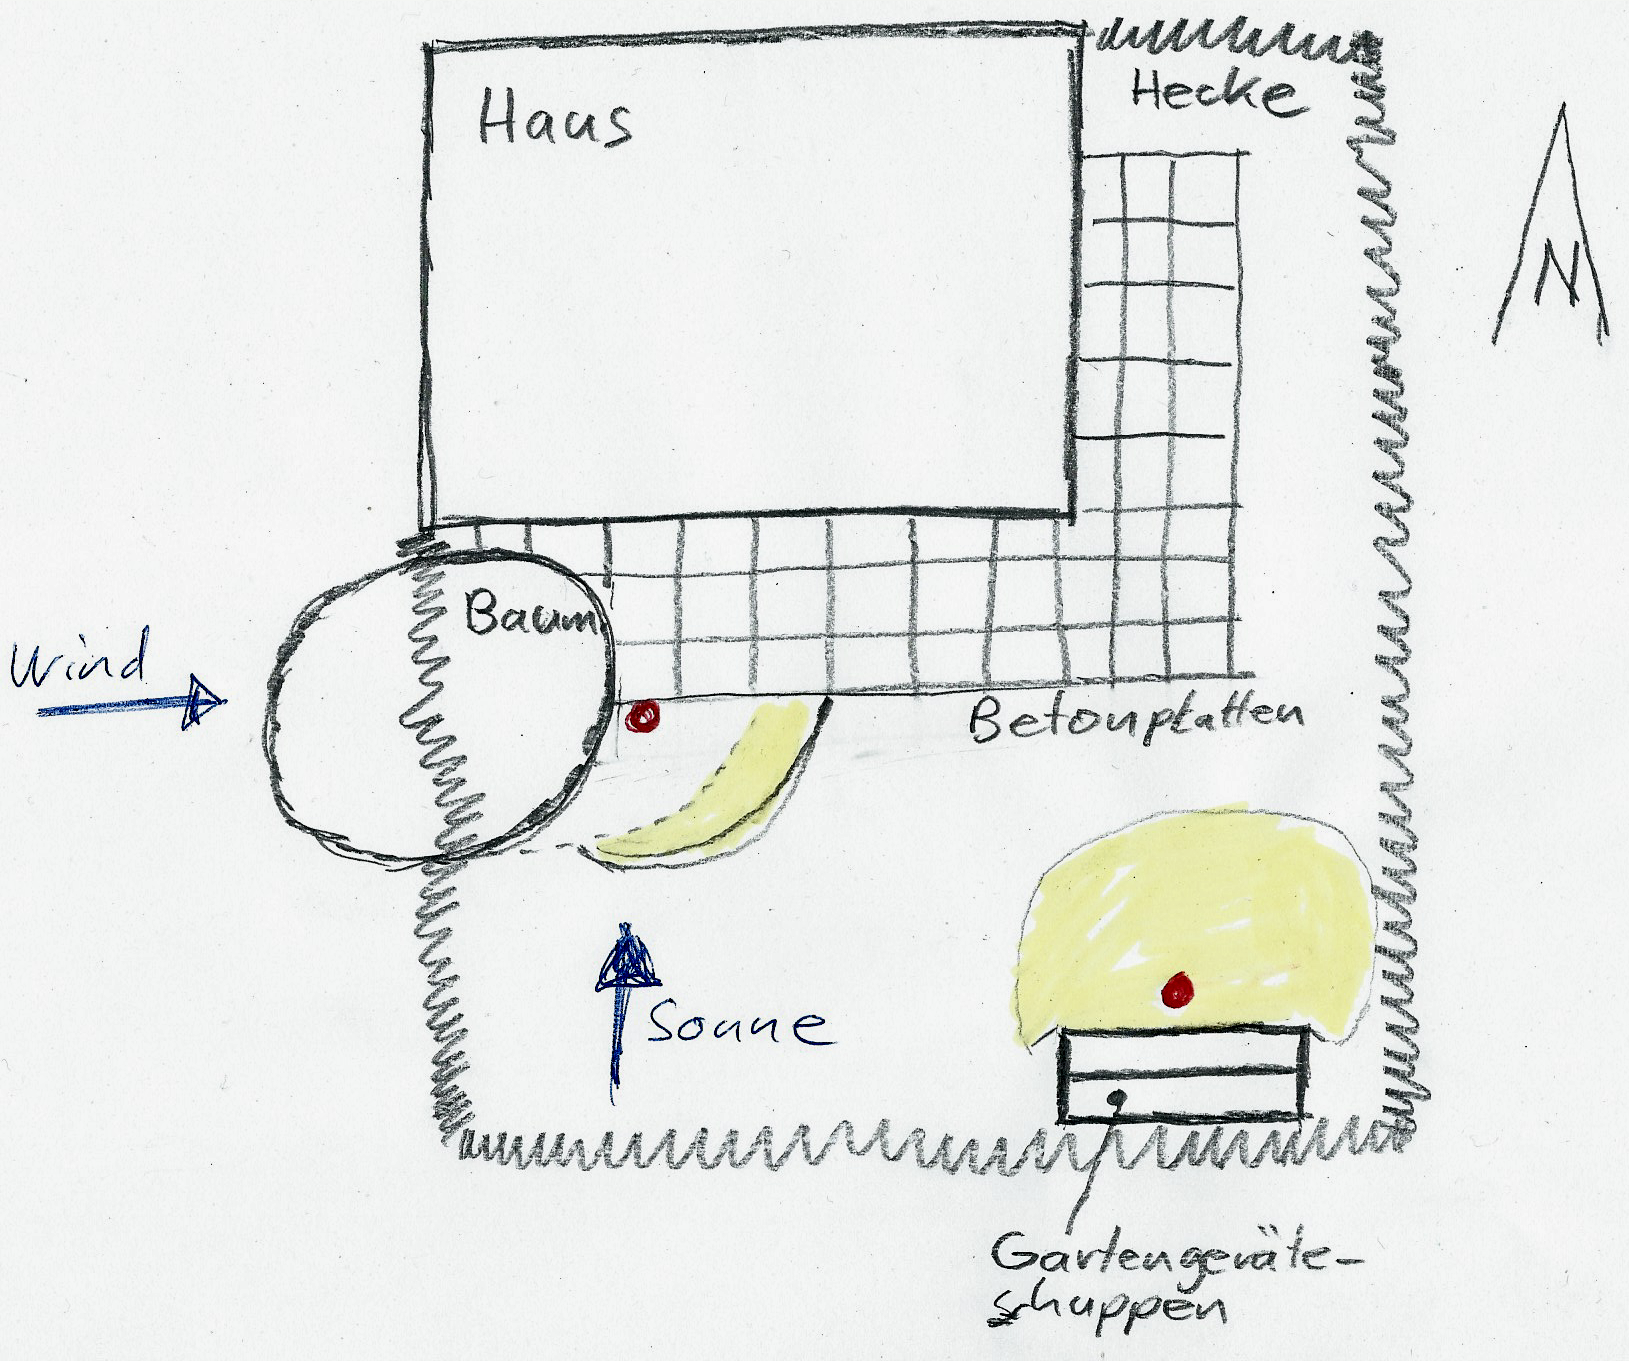 Haus
Hecke
N
Baum
Wind
Betonplatten
Sonne
Gartengeräte-
schuppen